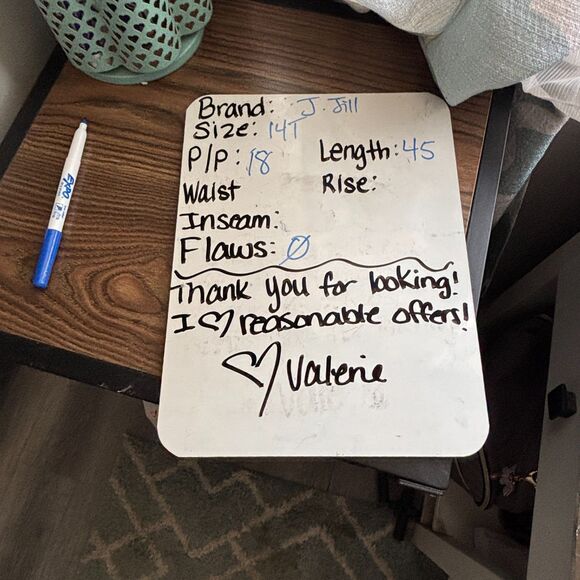 Brand: J. Jill
Size: 14T
P/P: 18 Length: 45
Waist Rise:
Inseam:
Flaws: Ø
Thank you for looking!
I ♡ reasonable offers!
♡ Valerie
EXPO